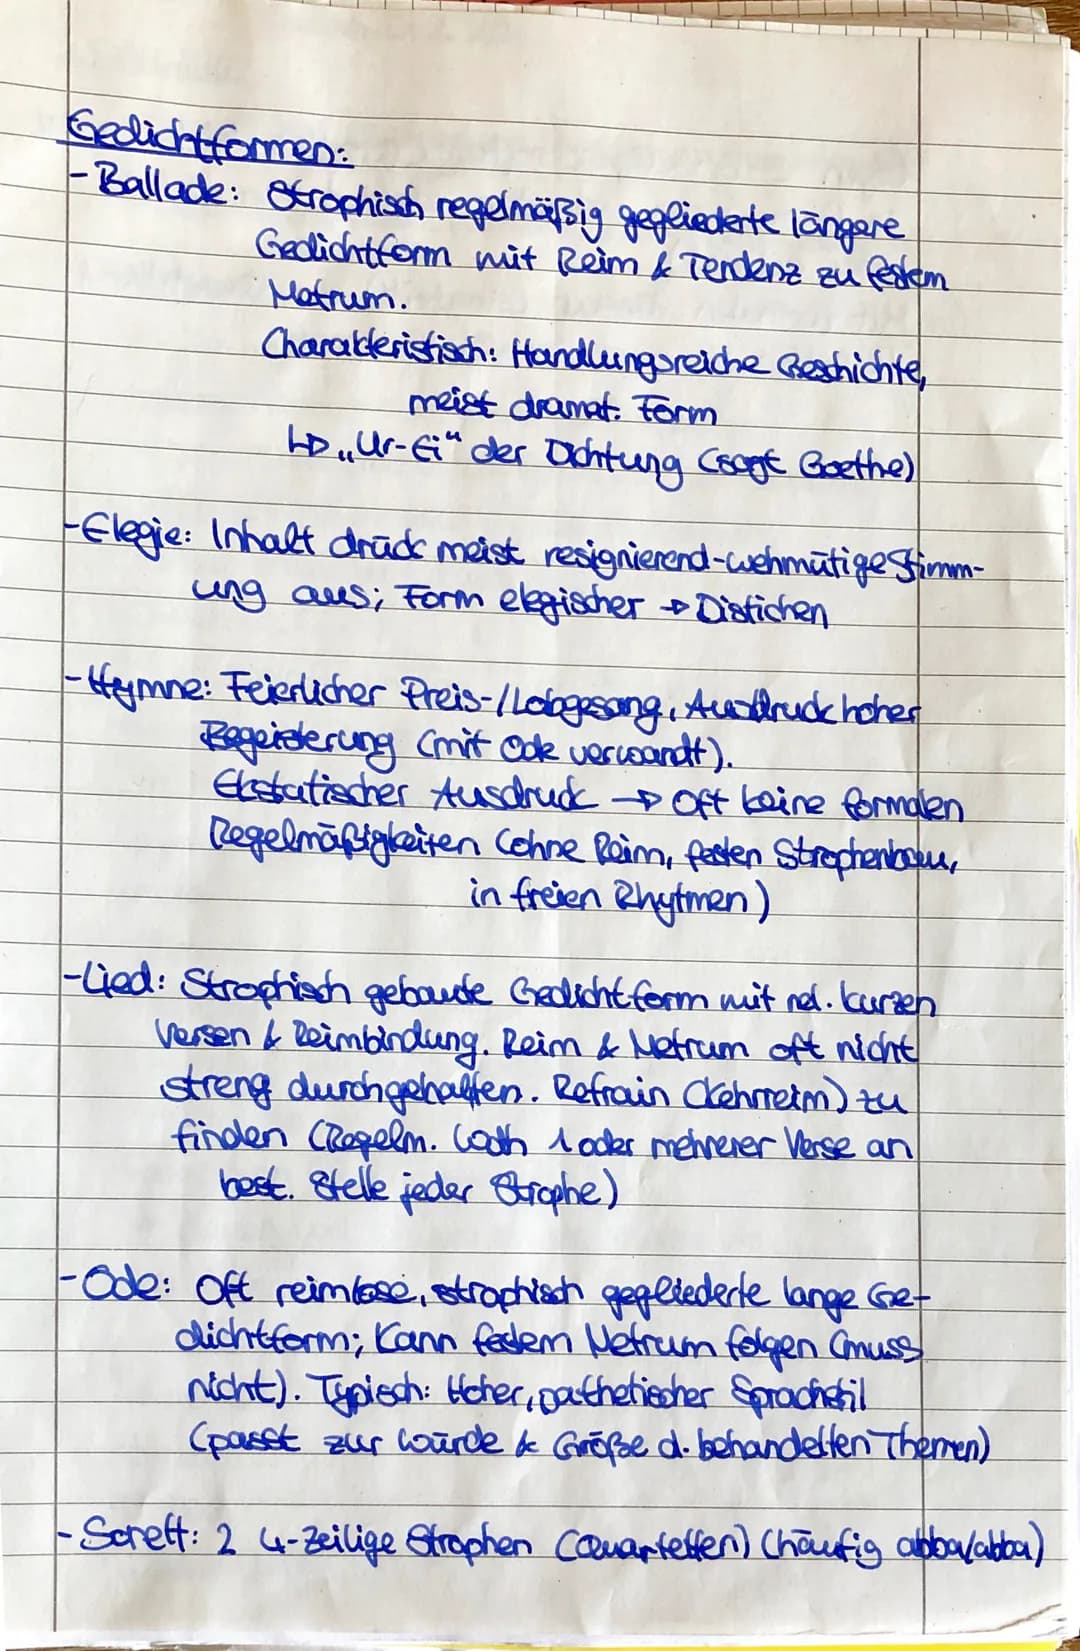 Gedichtformen:
- Ballade: Strophisch regelmäßig gegliederte längere
Gedichtform mit Reim & Tendenz zu festem
Metrum.
Charakteristisch: Handlungsreiche Geschichte,
meist dramat. Form
↳ „Ur-Ei“ der Dichtung (sagt Goethe)
- Elegie: Inhalt drückt meist resignierend-wehmütige Stimm-
ung aus; Form elegischer → Distichen
- Hymne: Feierlicher Preis-/Lobgesang, Ausdruck hoher
Begeisterung (mit Ode verwandt).
Ekstatischer Ausdruck → Oft keine formalen
Regelmäßigkeiten (ohne Reim, festen Strophenbau,
in freien Rhytmen)
- Lied: Strophisch gebaute Gedichtform mit rel. kurzen
Versen & Reimbindung. Reim & Metrum oft nicht
streng durchgehalten. Refrain (Kehrreim) zu
finden (Regelm. Wdh 1 oder mehrerer Verse an
best. Stelle jeder Strophe)
- Ode: Oft reimlose, strophisch gegliederte lange Ge-
dichtform; Kann festem Metrum folgen (muss
nicht). Typisch: Hoher, pathetischer Sprachstil
(passt zur Würde & Größe d. behandelten Themen)
- Sonett: 2 4-zeilige Strophen (Quartetten) (häufig abba/abba)